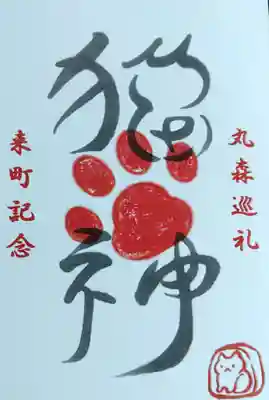 丸森巡礼
猫神
来町記念